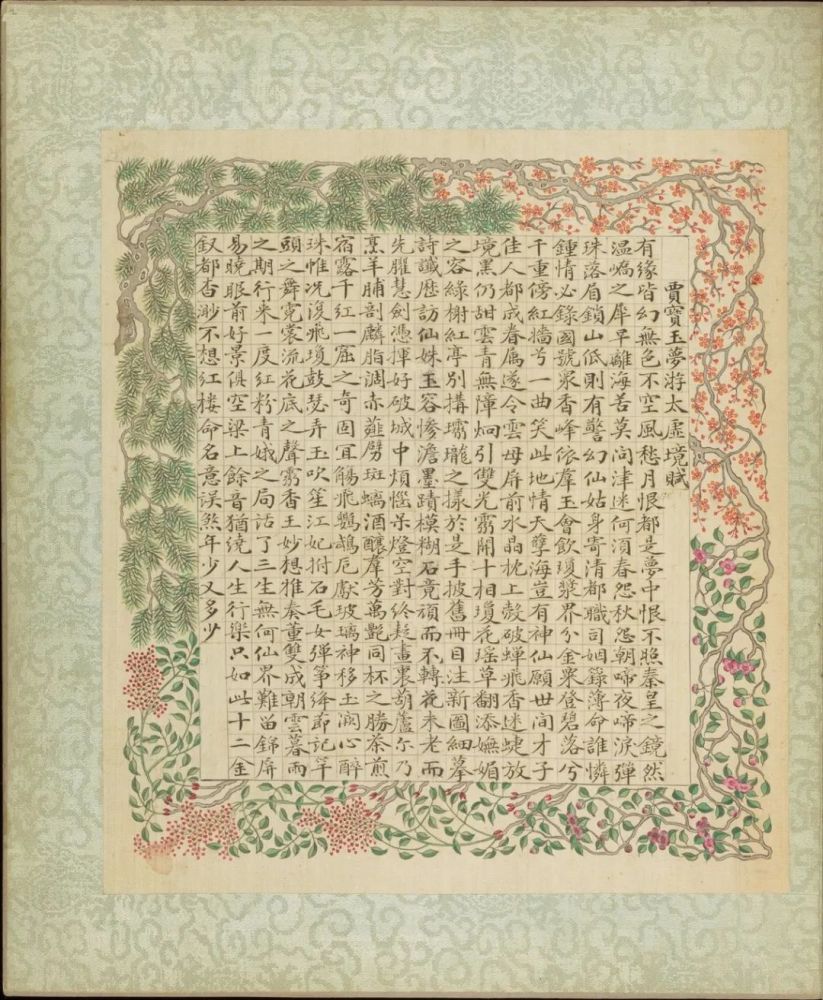 賈寶玉夢游太虛境賦
有緣皆幻無色不空風愁月恨都是夢中恨不照秦皇之鏡然
溫嶠之犀早離海苦莫問津迷何須春怨秋怨朝啼夜啼淚彈
珠落眉鎖山低則有警幻仙姑身寄清都職司姻錄薄命誰憐
鍾情必錄國號衆香峰依羣玉會飲瓊漿界分金粟登碧落兮
千重傍紅墻兮一曲笑此地情天孽海豈有神仙願世間才子
佳人都成眷屬遂令雲母屏前水晶枕上殼破蟬飛香迷蜨放
境黑仍甜雲青無障炯引雙光霧開十相瓊花瑤草翻添嫵媚
之容綠榭紅亭別搆瓏之樣於是手披舊冊目注新圖細摹
詩讖歷訪仙姝玉容慘澹墨蹟模糊石竟頑而不轉花未老而
先臞慧劍憑揮好破城中煩惱呆燈空對終疑畫裏葫蘆尔乃
烹羊脯剖麟脂調赤薤劈斑螭酒釀羣芳萬艷同杯之勝茶煎
宿露千紅一窟之奇固宜觴飛鸚鵡卮獻玻璃神移玉潤心醉
珠帷況復飛瓊鼓瑟弄玉吹笙江妃拊石毛女彈箏絳節記竿
頭之舞霓裳流花底之聲霧香王妙想雅奏董雙成朝雲暮雨
之期行來一度紅粉青娥之局話了三生無何仙界難留錦屏
易曉眼前好景俱空梁上餘音猶繞人生行樂只如此十二金
釵都杳渺不想紅楼命名意誤煞年少又多少